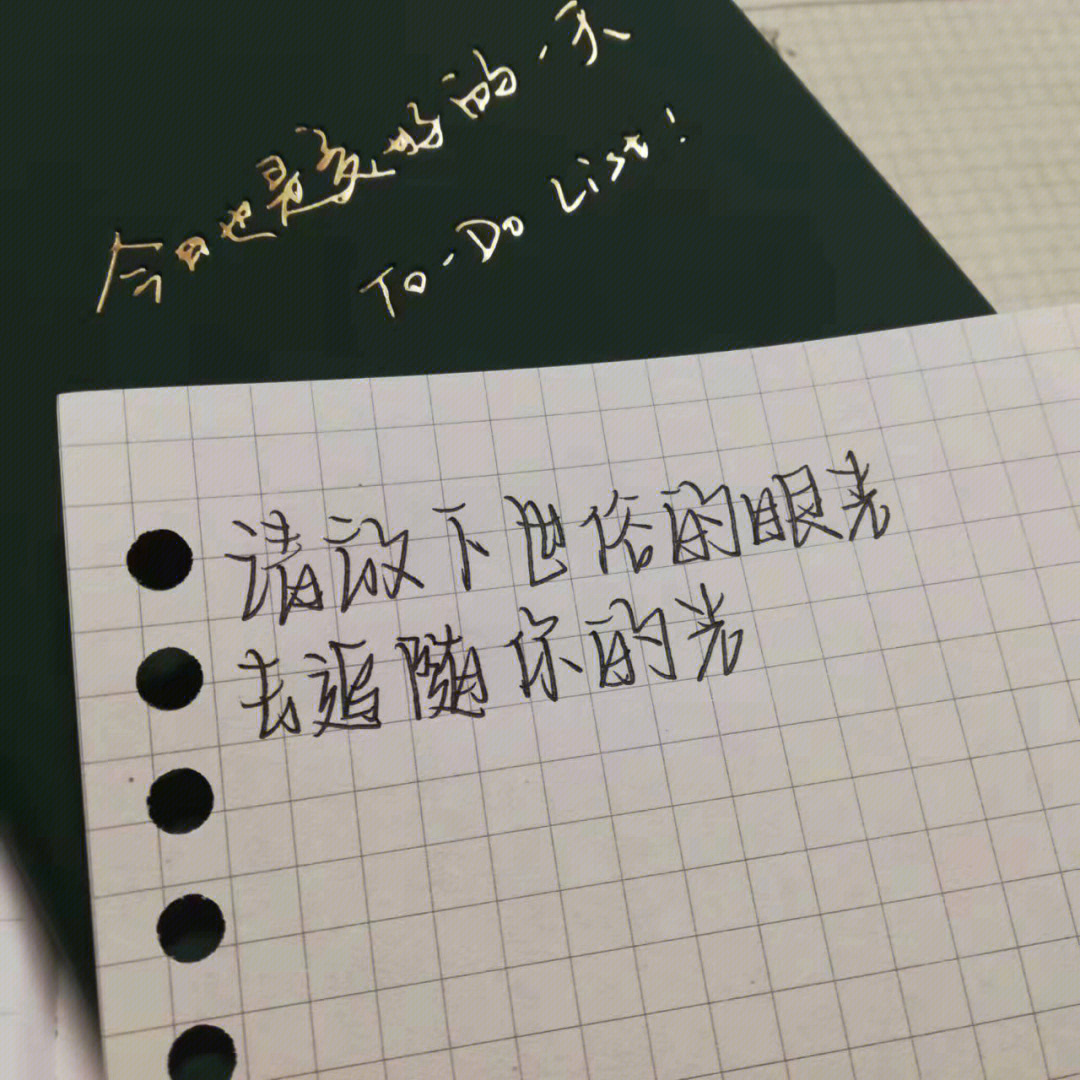 今日也是爱好的一天
To-Do List!
请放下世俗的眼光
去追随你的光